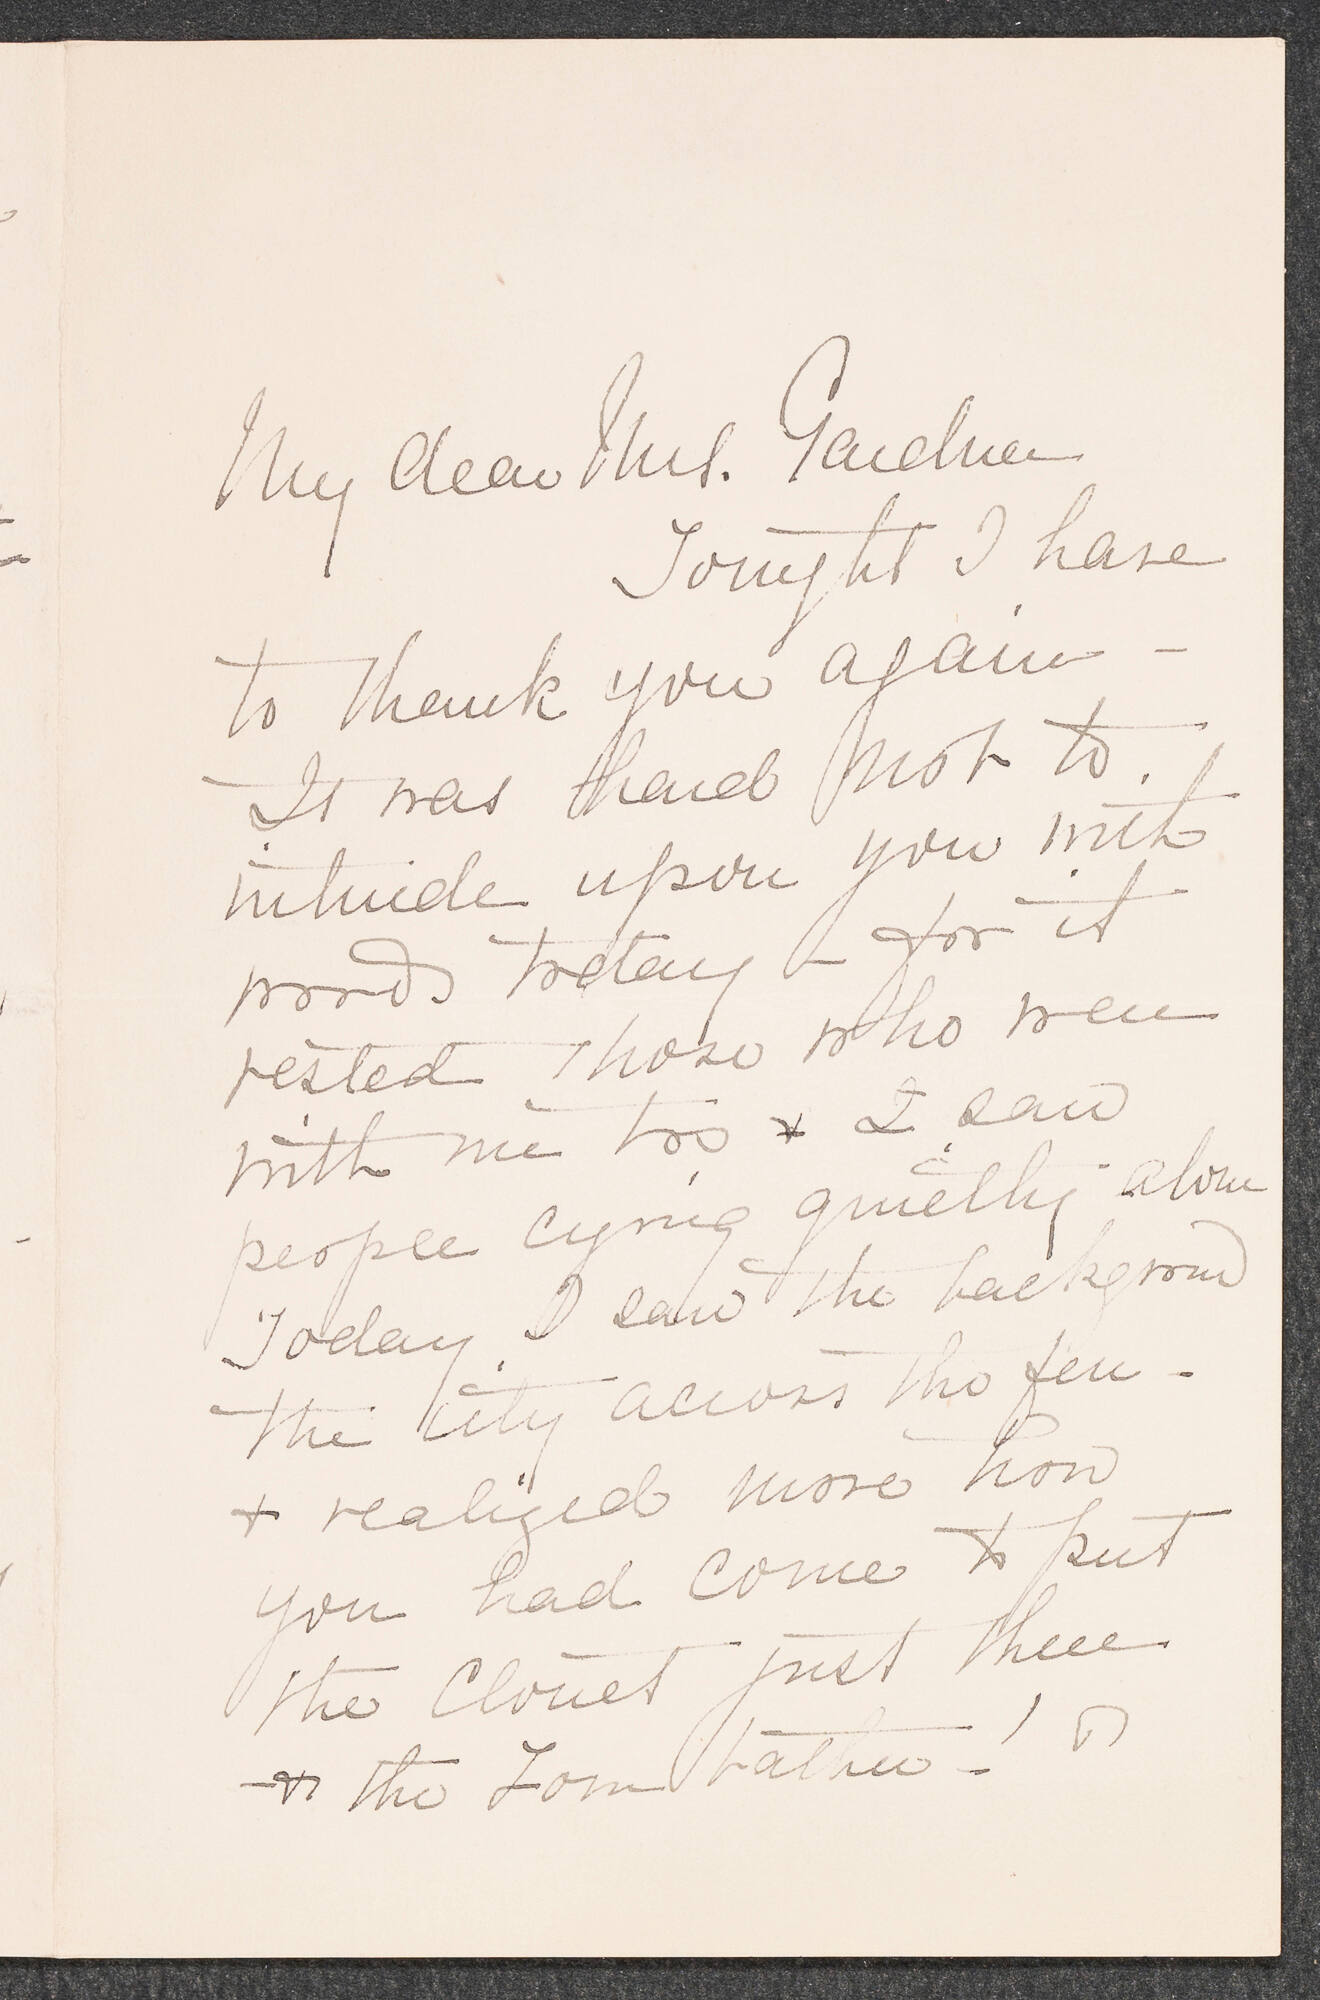 My dear Mrs. Gardner
Tonight I have
to thank you again -
It was hard not to
intrude upon you with
words today - for it
rested those who were
with me too + I saw
people crying quietly alone
Today I saw the background
the city across the fen -
+ realized more how
you had come + put
the Cloiset just there
+ the Tom